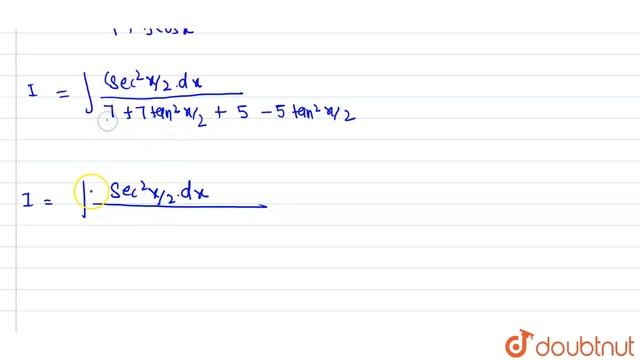 I = ∫ sec²x/2.dx / 7 + 7 tan²x/2 + 5 - 5 tan²x/2
I = ∫ sec²x/2.dx
doubtnut